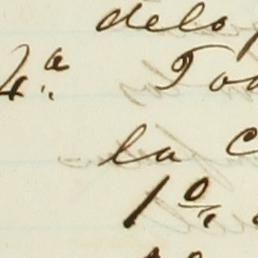 delo
4.ª To
la C
1º